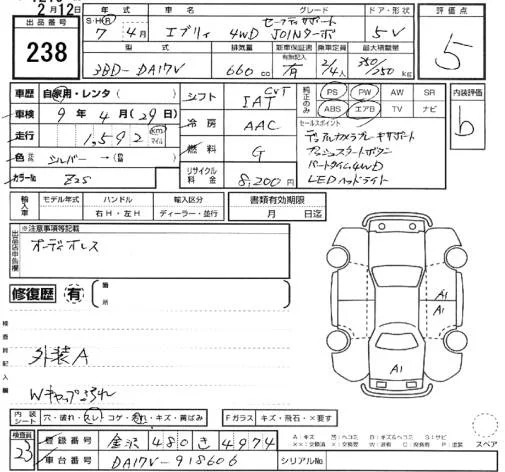 2月12日
出品番号
238
年式
車名
グレード
ドア・形状
S・H・R
7 年 4 月
エブリィ
4WD
セーフティサポート
JOINターボ
5V
型式
排気量
新車保証書
有無記入
乗車定員
最大積載量
3BD-DA17V
660cc
有
2/4人
350/250kg
評価点
5
車歴
自家用・レンタ(
車検
9年4月(29日)
走行
1,592
km
マイル
色
シルバー→(
カラーNo.
Z2S
シフト
CVT
IAT
冷房
AAC
燃料
G
リサイクル料金
8,200円
純正のみ
PS PW AW SR
ABS エアB TV ナビ
セールスポイント
デュアルカメラブレーキサポート
プッシュスタートボタン
パートタイム4WD
LEDヘッドライト
内装評価
b
輸入車
モデル年式
ハンドル
右H・左H
輸入区分
ディーラー・並行
書類有効期限
月 日迄
出品店申告欄
※注意事項等記載
オーディオレス
修復歴
有
箇所
検査員記入欄
外装A
Wキャップ割れ
A1
A1
A1
A1
内装シート
穴・破れ・スレ・コゲ・汚れ・キズ・黄ばみ
Fガラス
キズ・飛石・×要す
スペア
検査員
23
登録番号
金沢 480 き 4974
車台番号
DA17V-918606
シリアルNo.